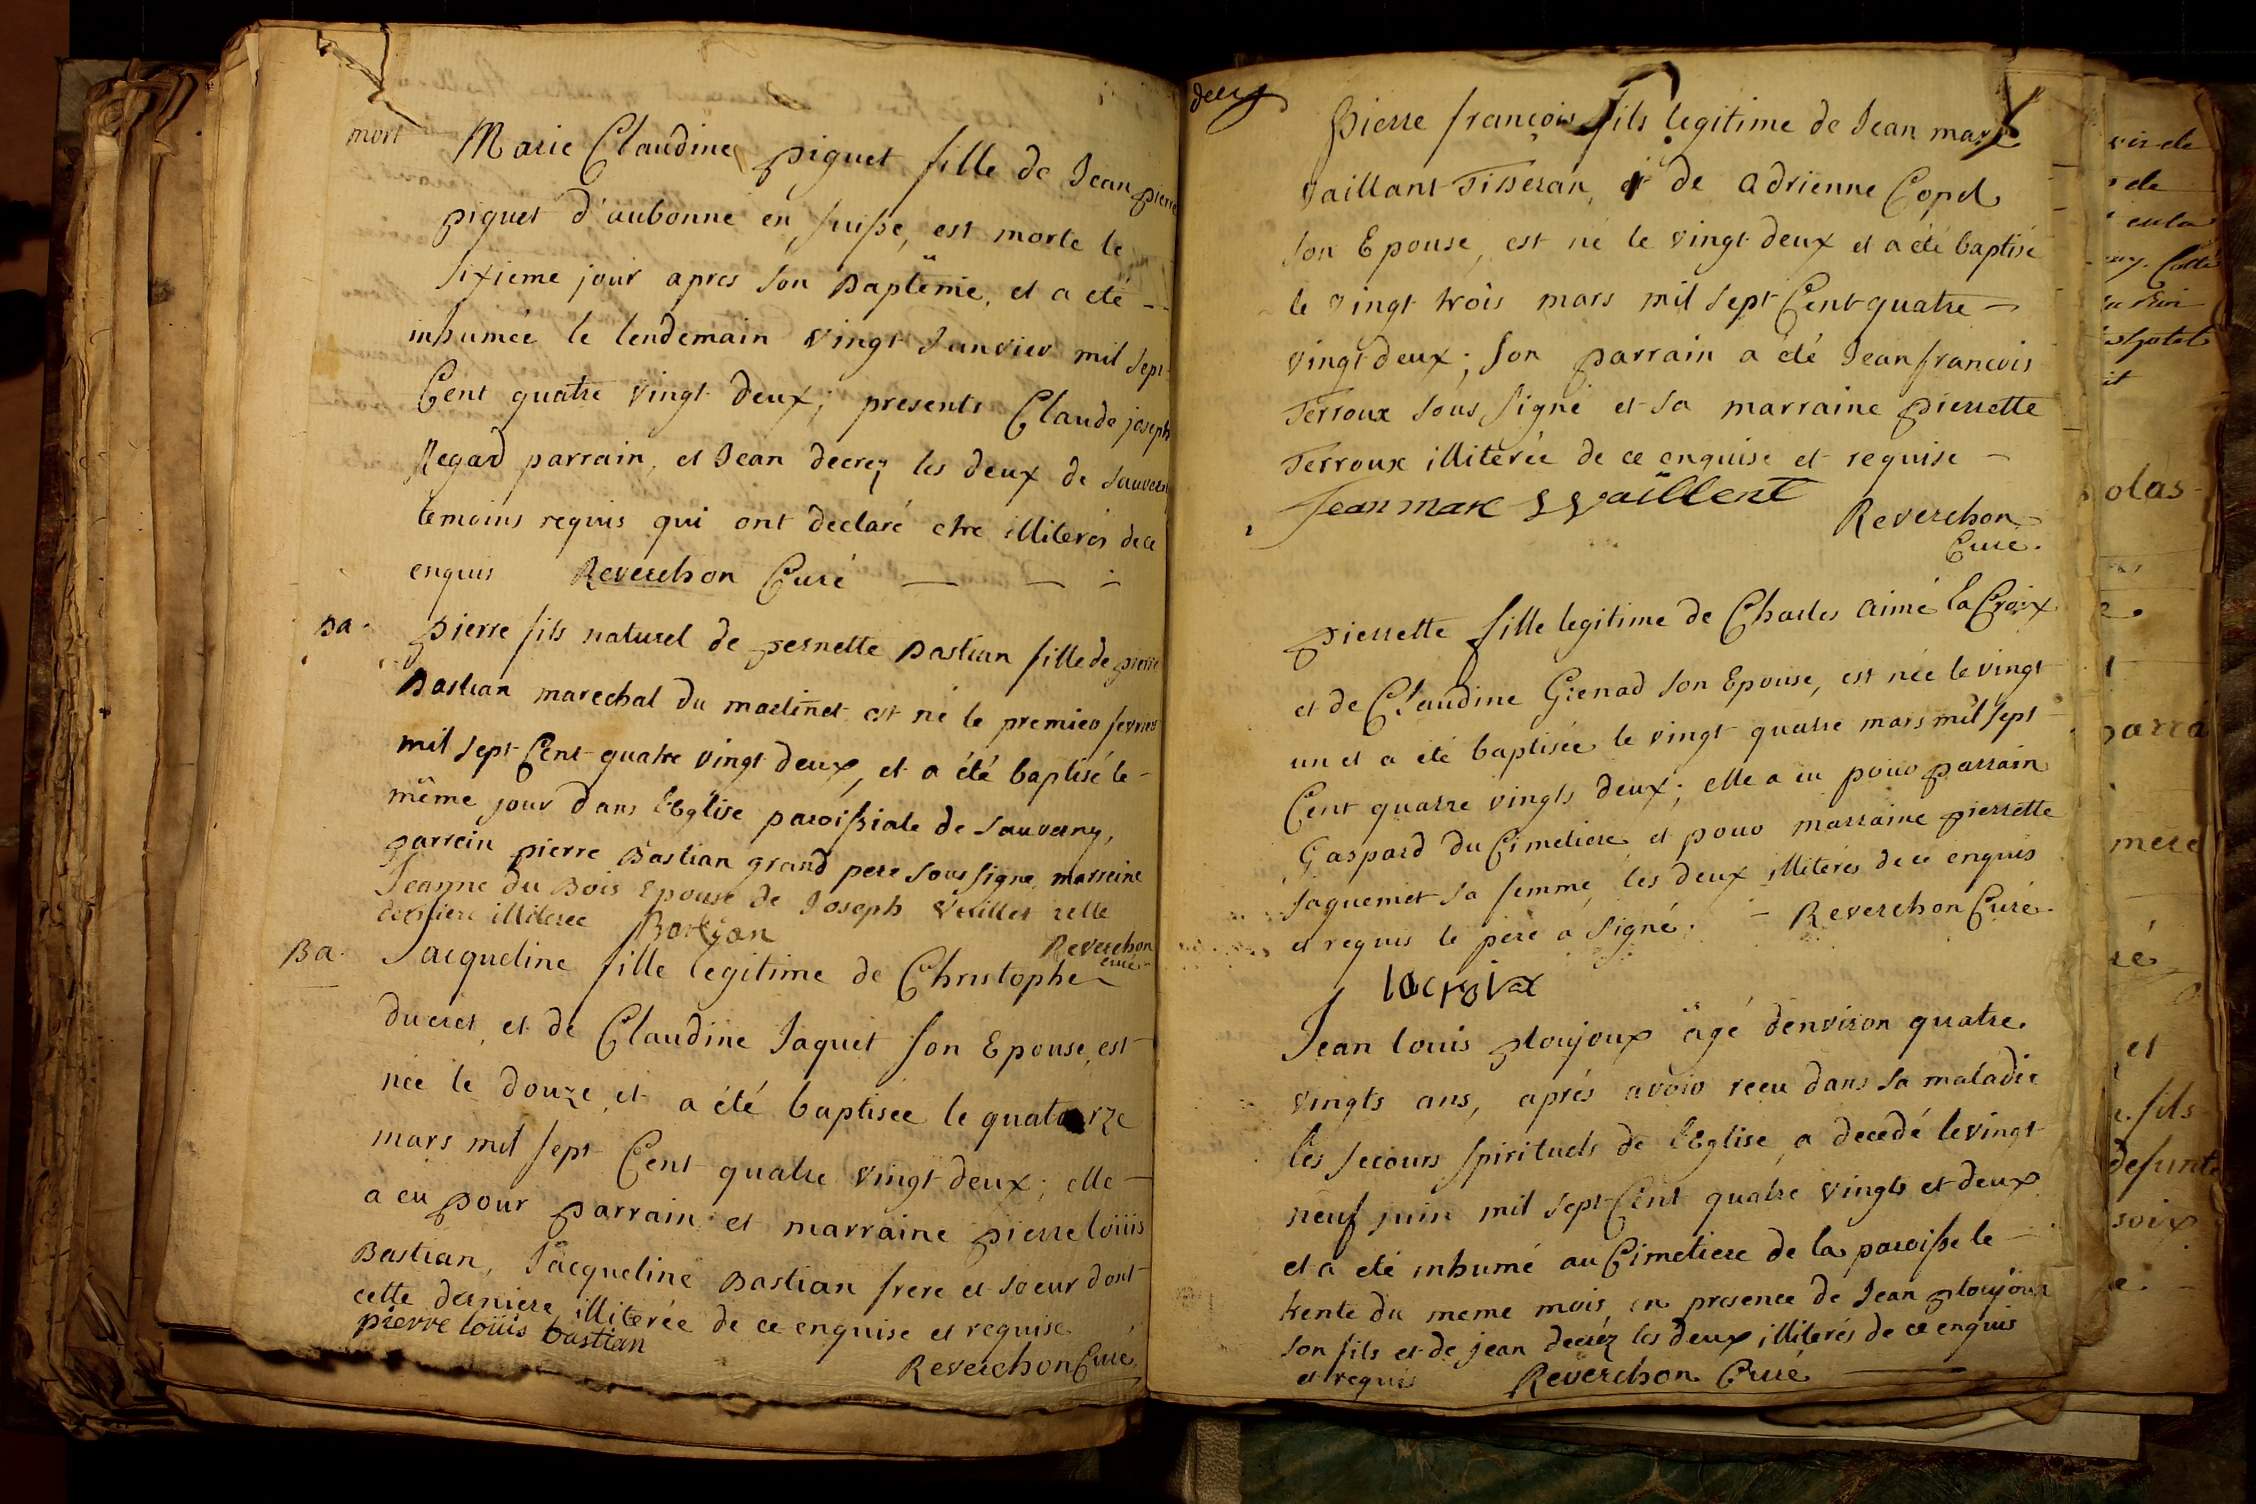 mort
Marie Claudine piguet fille de Jean pierre
piguet d'aubonne en suisse, est morte le
sixieme jour apres son Baptême, et a eté
inhumée le lendemain vingt Janvier mil sept
Cent quatre vingt deux; presents Claude joseph
Regard parrain, et Jean decrey les deux de sauverny
temoins requis qui ont declaré etre illiterés de ce
enquis Reverchon Curé
Ba.
pierre fils naturel de pernette Bastian fille de pierre
Bastian marechal du martinet est né le premier fevrier
mil sept Cent quatre vingt deux, et a été baptisé le
même jour dans l'Eglise paroissiale de sauverny,
parrein pierre Bastian grand pere sous signe, marreine
Jeanne du Bois Epouse de Joseph Vuillet celle
derniere illiteree Bastian
Reverchon
curé
Ba.
Jacqueline fille legitime de Christophe
ducret, et de Claudine Jaquet son Epouse, est
née le douze, et a été baptisée le quatorze
mars mil sept Cent quatre vingt deux; elle
a eu pour parrain et marraine pierre loüis
Bastian, Jacqueline Bastian frere et soeur dont
cette derniere illiterée de ce enquise et requise
pierre loüis bastian
Reverchon Curé
deux
Pierre françois fils legitime de Jean marc
vaillant Tisseran, et de adrienne Copel
son Epouse, est né le vingt deux et a été baptisé
le vingt trois mars mil sept Cent quatre
vingt deux; son parrain a été Jean francois
Terroux sous signé et sa marraine pierrette
Terroux illiterée de ce enquise et requise
Jean marc vaillent
Reverchon
Curé.
pierrette fille legitime de Charles aimé la Croix
et de Claudine Grenad son Epouse, est née le vingt
un et a été baptisée le vingt quatre mars mil sept
Cent quatre vingts deux; elle a eu pour parrain
Gaspard du Cimetiere et pour marraine pierrette
Jaquemet sa femme, les deux illiterés de ce enquis
et requis le pere a signé. Reverchon Curé.
lacroix
Jean louis ploujoux âgé d'environ quatre
vingts ans, aprés avoir reçu dans sa maladie
les secours spirituels de l'Eglise, a decedé le vingt
neuf juin mil sept Cent quatre vingts et deux
et a eté inhumé au Cimetiere de la paroisse le
trente du meme mois, en presence de Jean ploujoux
son fils et de jean decréz les deux illiterés de ce enquis
et requis Reverchon Curé
olas
parra
mere
et
fils
defunte